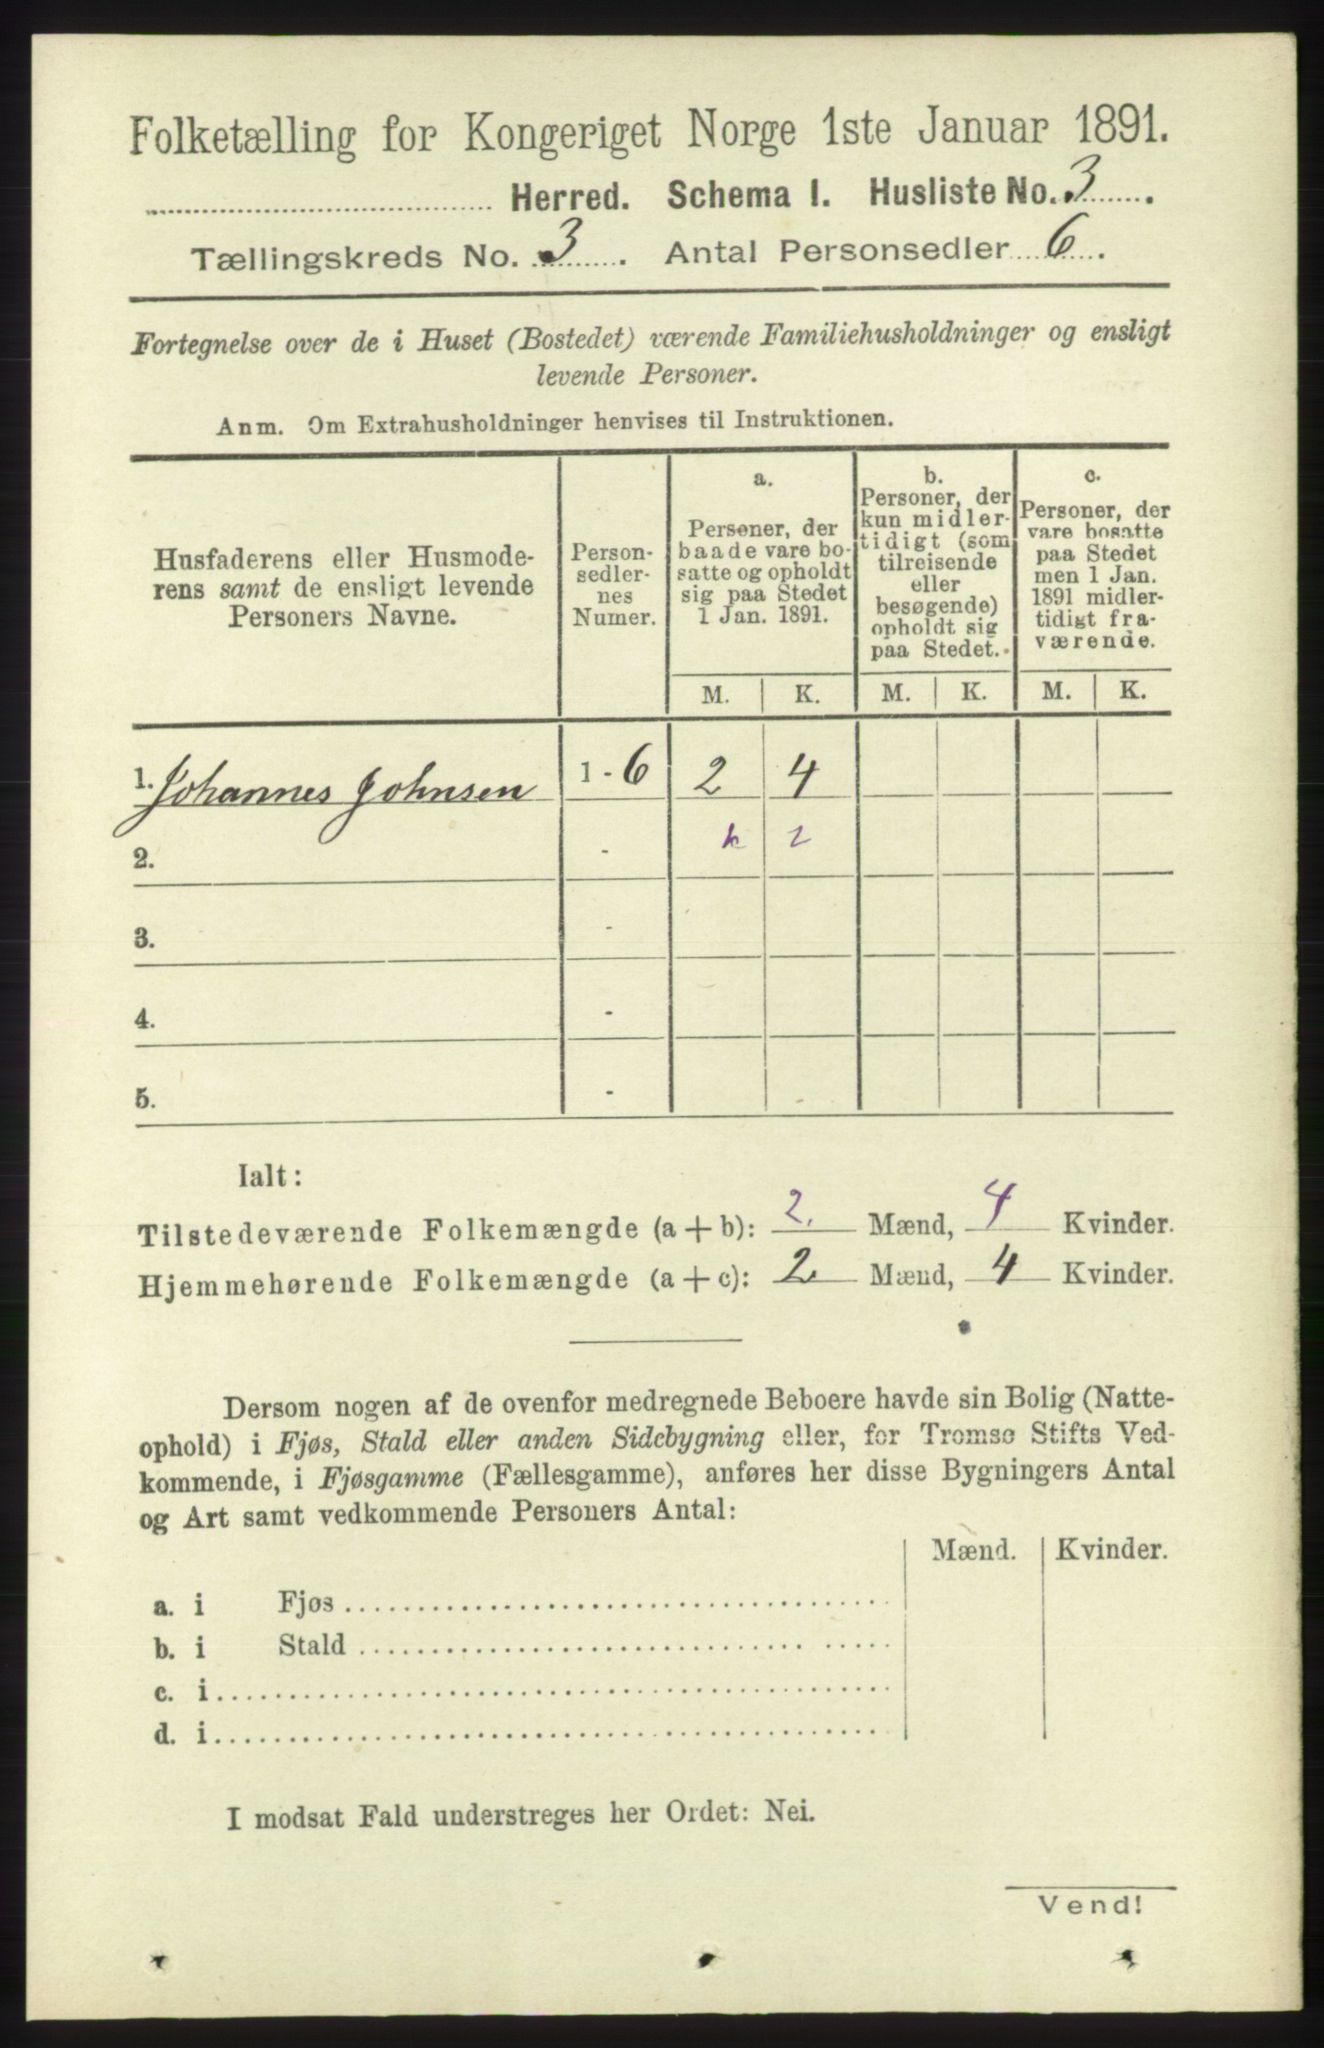 Folketælling for Kongeriget Norge 1ste Januar 1891.
Herred. Schema I. Husliste No. 3.
Tællingskreds No. 3. Antal Personsedler 6.
Fortegnelse over de i Huset (Bostedet) værende Familiehusholdninger og ensligt
levende Personer.
Anm. Om Extrahusholdninger henvises til Instruktionen.
Husfaderens eller Husmode-
rens samt de ensligt levende
Personers Navne.
Person-
sedler-
nes
Numer.
a.
Personer, der
baade vare bo-
satte og opholdt
sig paa Stedet
1 Jan. 1891.
b.
Personer, der
kun midler-
tidigt (som
tilreisende
eller
besøgende)
opholdt sig
paa Stedet.
c.
Personer, der
vare bosatte
paa Stedet
men 1 Jan.
1891 midler-
tidigt fra-
værende.
M. K. M. K. M. K.
1. Johannes Johnsen 1 - 6 2 4
2. - k 2
3. -
4. -
5. -
Ialt:
Tilstedeværende Folkemængde (a + b): 2. Mænd, 4 Kvinder.
Hjemmehørende Folkemængde (a + c): 2 Mænd, 4 Kvinder.
Dersom nogen af de ovenfor medregnede Beboere havde sin Bolig (Natte-
ophold) i Fjøs, Stald eller anden Sidebygning eller, for Tromsø Stifts Ved-
kommende, i Fjøsgamme (Fællesgamme), anføres her disse Bygningers Antal
og Art samt vedkommende Personers Antal:
Mænd. Kvinder.
a. i Fjøs
b. i Stald
c. i
d. i
I modsat Fald understreges her Ordet: Nei.
Vend!